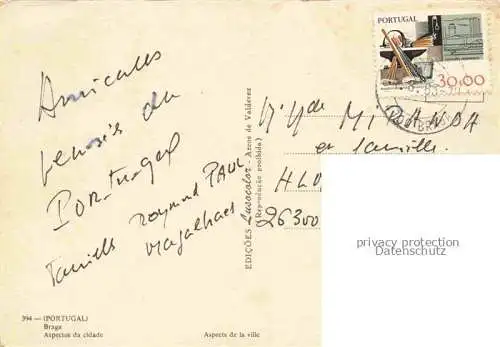 Amicales
pensées du
Portugal
Famille Raymond PAUL
Magalhaes
394 — (PORTUGAL)
Braga
Aspectos da cidade
Aspects de la ville
EDIÇÕES Lusocolor - Arcos de Valdevez
(Reprodução proibida)
PORTUGAL
30.00
MIRANDA
et famille
26300
privacy protection
Datenschutz